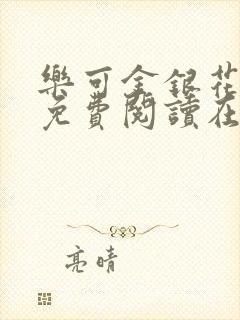 樂可金銀花
免費閱讀在
亮晴